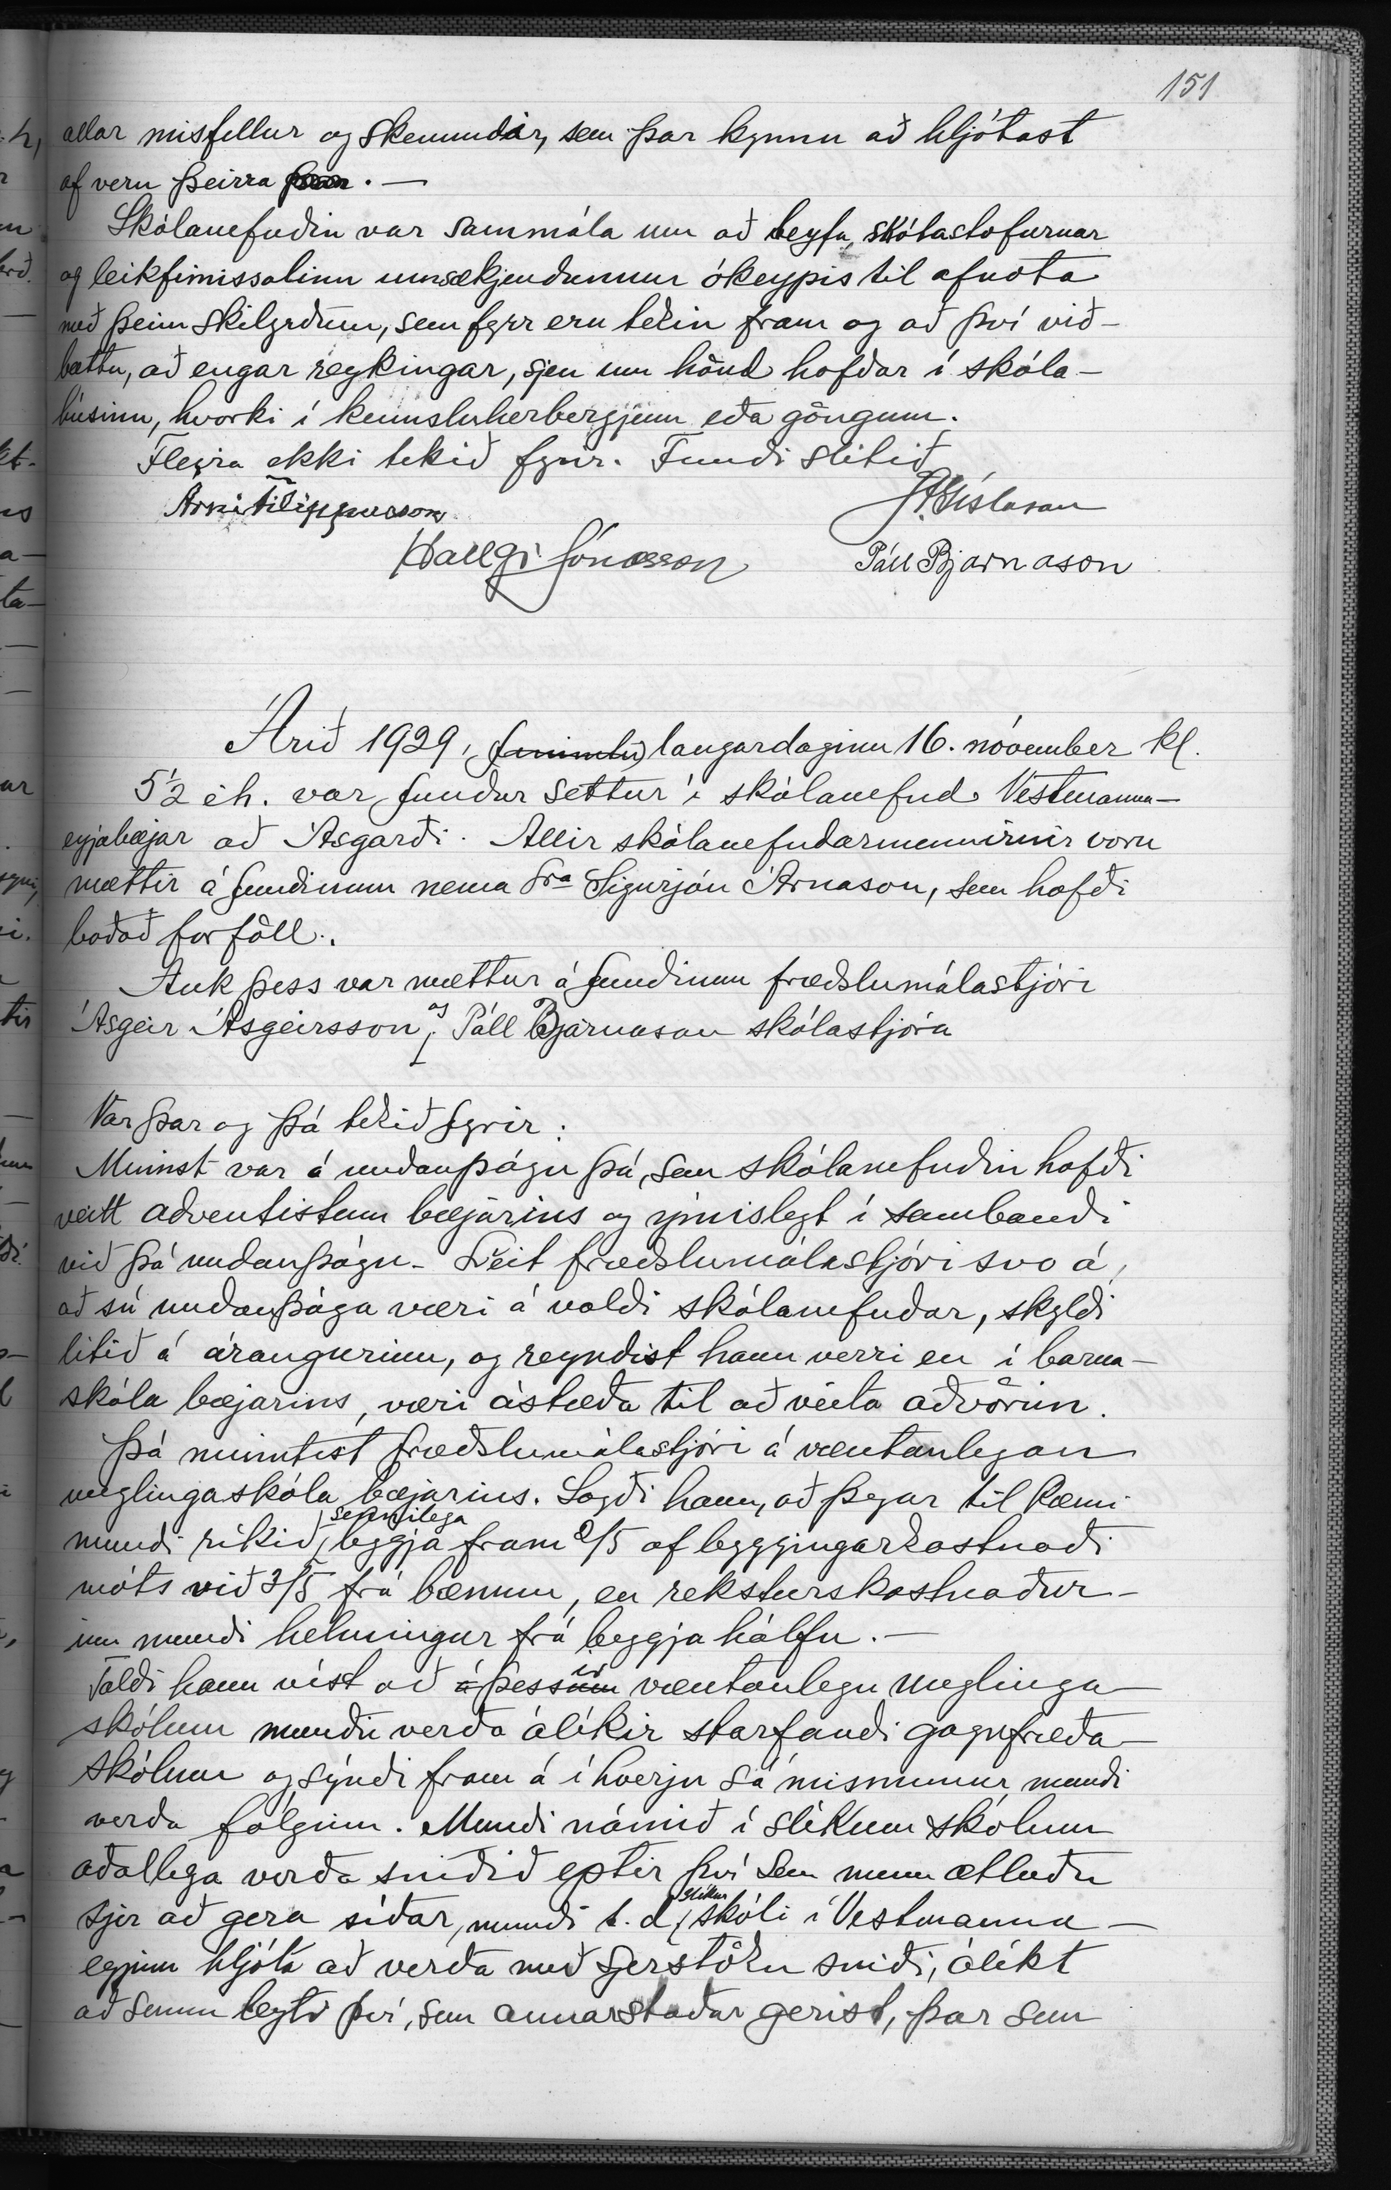 151
allar misfellur og skemmdir, sem þar kynnu að hljótast
af veru þeirra þar. —
Skólanefndin var sammála um að leyfa skólastofurnar
og leikfimissalinn umsækjendunum ókeypis til afnota
með þeim skilyrðum, sem fyrr eru tekin fram og að því við-
bættu, að engar reykingar, sjeu um hönd hafðar í skóla-
húsinu, hvorki í kennsluherbergjum eða göngum.
Fleira ekki tekið fyrir. Fundi slitið
Árni Filippusson P. Gíslason
Hallgr. Jónasson Páll Bjarnason
Árið 1929, fimmtu laugardaginn 16. nóvember kl.
5½ eh. var fundur settur í skólanefnd Vestmanna-
eyjabæjar að Ásgarði. Allir skólanefndarmennirnir voru
mættir á fundinum nema Sra Sigurjón Árnason, sem hafði
boðað forföll.
Auk þess var mættur á fundinum fræðslumálastjóri
Ásgeir Ásgeirsson, og Páll Bjarnason skólastjóra
Var þar og þá tekið fyrir:
Minnst var á undanþágu þá, sem skólanefndin hafði
veitt adventistum bæjarins og ýmislegt í sambandi
við þá undanþágu. Leit fræðslumálastjóri svo á,
að sú undanþága væri á valdi skólanefndar, skyldi
litið á árangurinn, og reyndist hann verri en í barna-
skóla bæjarins, væri ástæða til að veita aðvörun.
Þá minntist fræðslumálastjóri á væntanlegan
unglingaskóla bæjarins. Sagði hann, að þegar til kæmi
mundi ríkið, sennilega leggja fram 2/5 af byggingarkostnaði
móts við 3/5 frá bænum, en reksturskostnaður-
inn mundi helmingur frá beggja hálfu. —
Taldi hann víst að á þessum ir væntanlegu unglinga-
skólum mundu verða ólíkir starfandi gagnfræða-
skólum og sýndi fram á í hverju sá mismunur mundi
verða fólginn. Mundi námið í slíkum skólum
aðallega verða sniðið eptir því sem menn ætluðu
sjer að gera síðar, mundi t.d. slíkur skóli í Vestmanna-
eyjum hljóta að verða með sjerstöku sniði, ólíkt
að sumu leyti því, sem annarstaðar gerist, þar sem